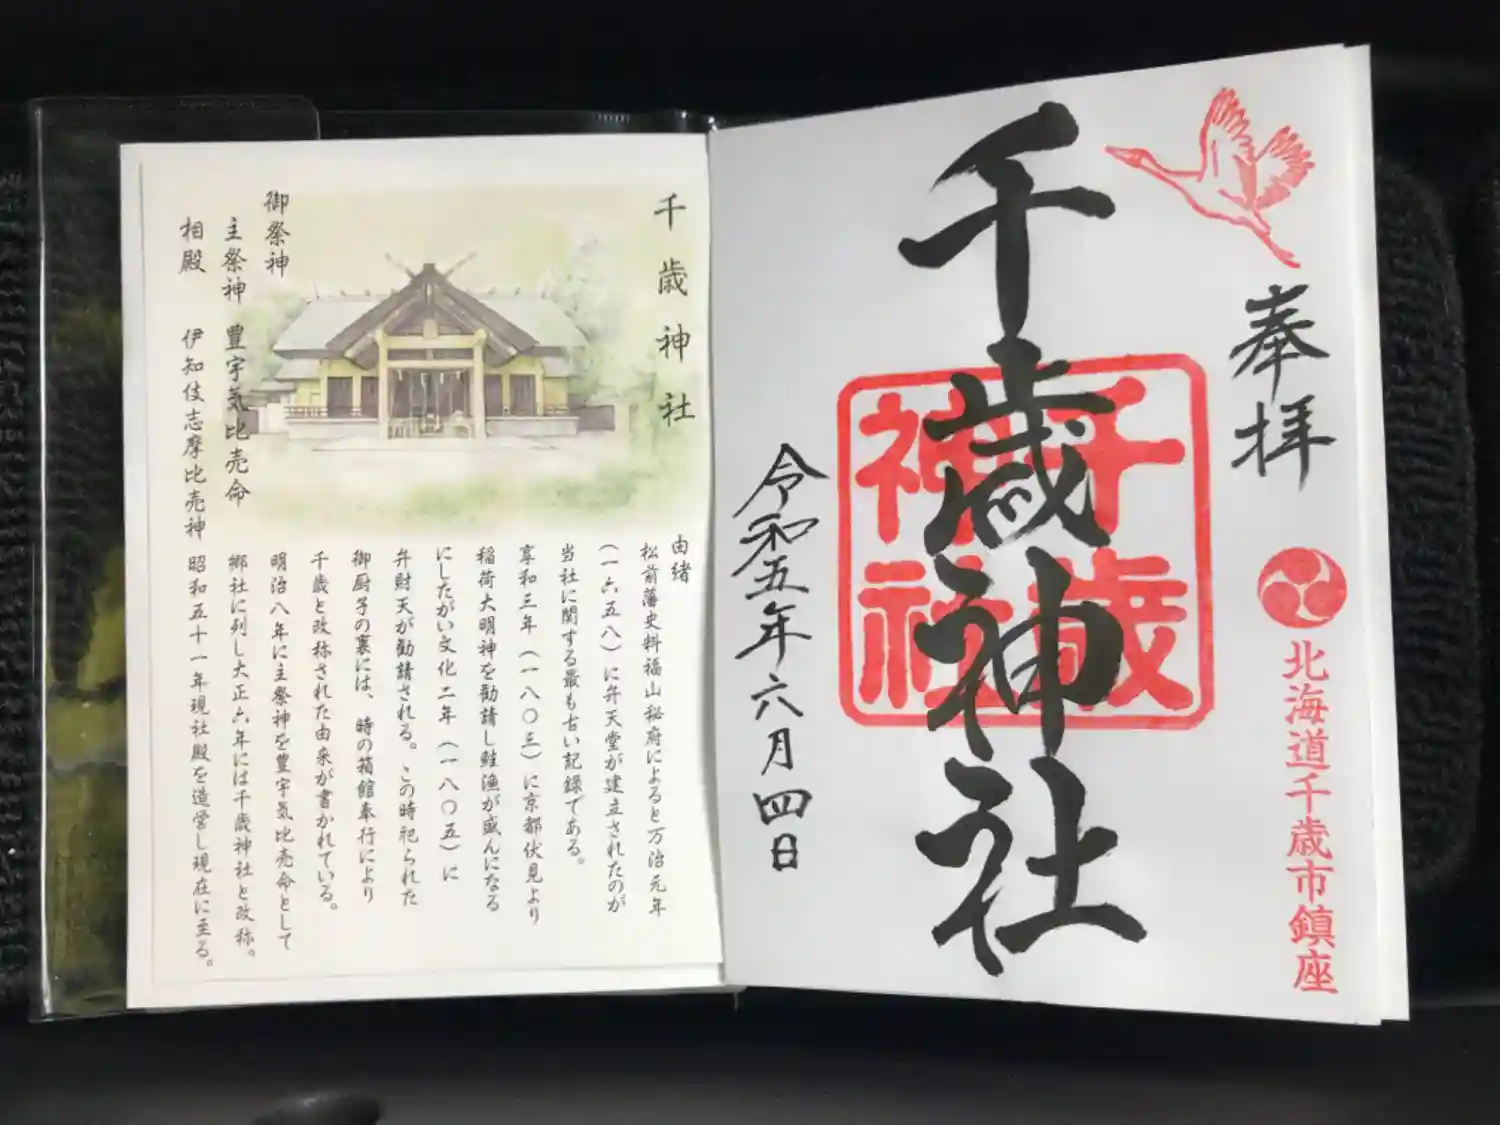 奉拝
北海道千歳市鎮座
千歳神社
千歳
神社
令和五年六月四日
千歳神社
御祭神
主祭神 豊宇気比売命
相殿 伊知伎志摩比売神
由緒
松前藩史料福山秘府によると万治元年
(一六五八)に弁天堂が建立されたのが
当社に関する最も古い記録である。
享和三年(一八〇三)に京都伏見より
稲荷大明神を勧請し鮭漁が盛んになる
にしたがい文化二年(一八〇五)に
弁財天が勧請される。この時祀られた
御厨子の裏には、時の箱館奉行により
千歳と改称された由来が書かれている。
明治八年に主祭神を豊宇気比売命として
郷社に列し大正六年には千歳神社と改称。
昭和五十一年現社殿を造営し現在に至る。